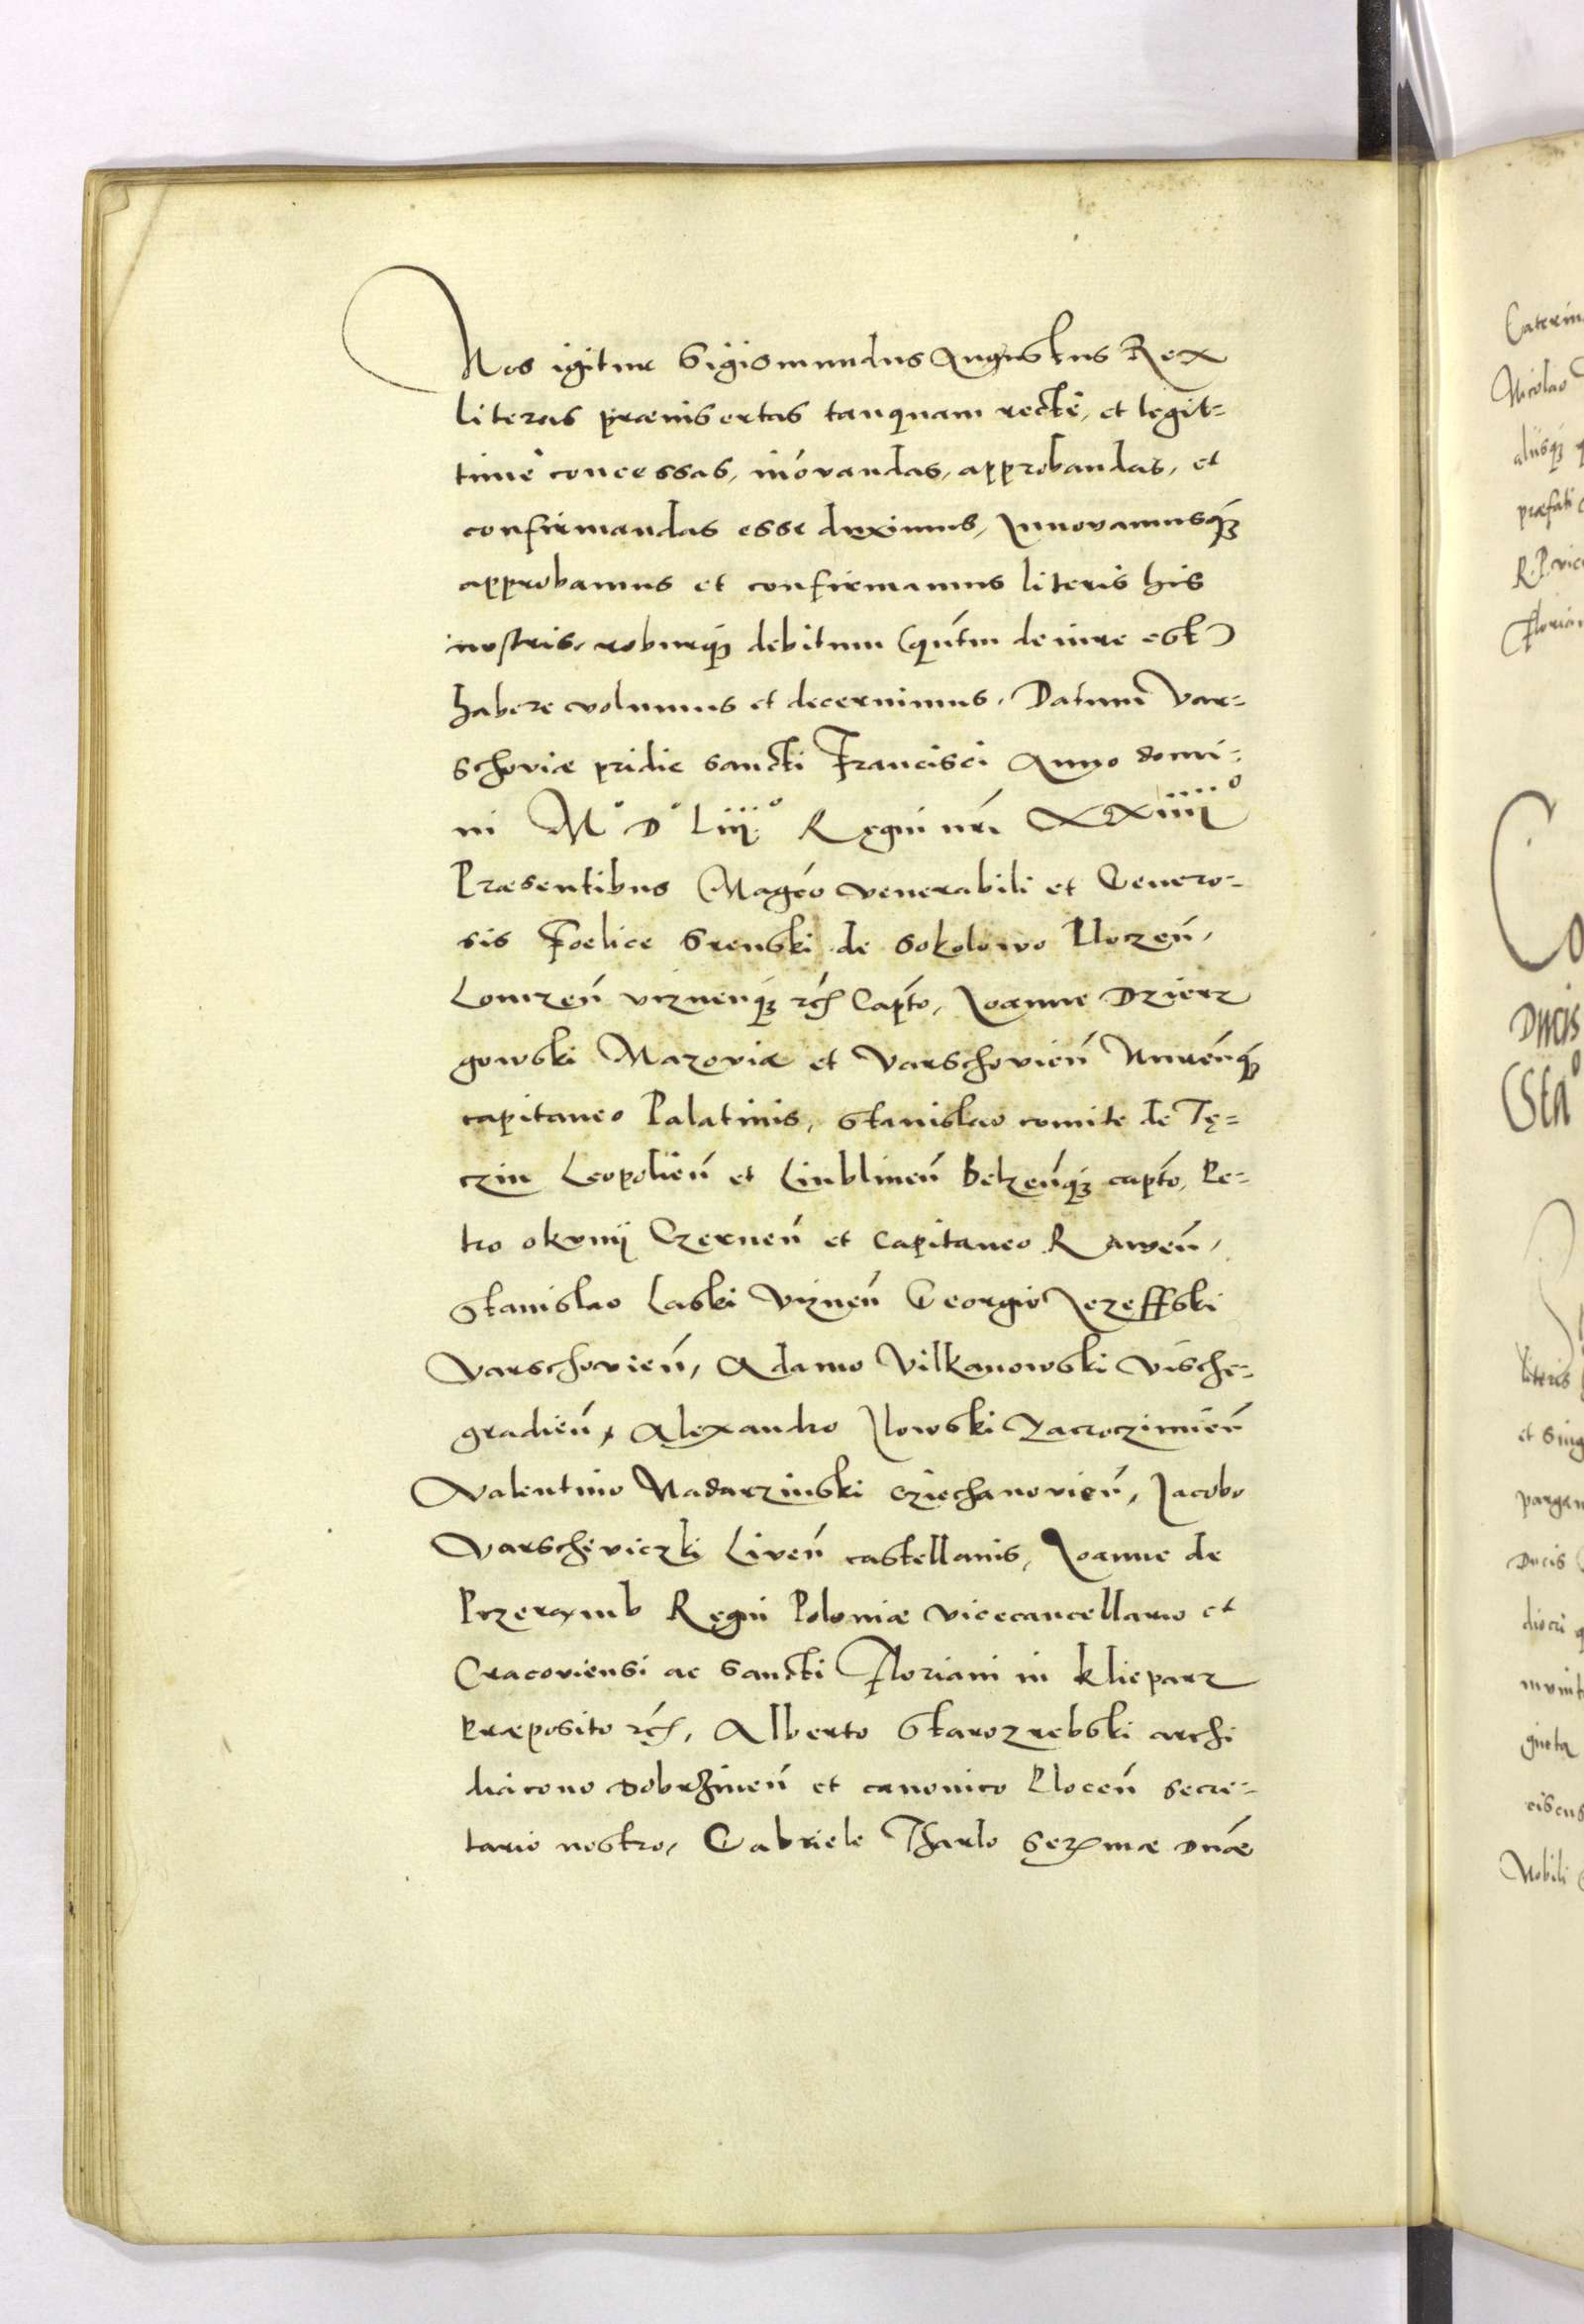 Nos igitur Sigismundus Augustus Rex
literas præinsertas tanquam rectè, et legit=
timè concessas, inóvandas, approbandas, et
confirmandas esse duximus, Innovamusq́ȝ
approbamus et confirmamus literis his
nostris, roburq́ȝ debitum (quńtm de iure est)
habere volumus et decernimus. Datum Var=
schoviæ pridie sancti Francisci Anno domi=
ni M° D° Liii° Regni nrí XXiiii°
Præsentibus Magćo venerabili et Genero=
sis Foelice Srenski de Sokolowo Ploczeń,
Lomzeń vizneńq́ȝ rć Capto, Joanne Dzierz
gowski Mazoviæ et Varschovień Nureńq́ȝ
capitaneo Palatinis, Stanislao comite de Tę=
czin Leopolień et Liublineń Belzeńq́ȝ capto, Pe=
tro okunij Czerneń et Capitaneo Raweń,
Stanislao Laski Vizneń Georgio Jezeffski
Varschovień, Adamo Vilkanowski Vische=
gradień, Alexandro Ilowski Zacroczimień
Valentino Nadarzinski Cziechanovień, Jacobo
Varscheviczki Liveń castellanis, Joanne de
Przerąmb Regni Poloniæ vicecancellario et
Cracoviensi ac sancti Floriani in Klieparz
Præposito rć, Alberto Starozrebski archi
diacono Dobrzineń et canonico Ploceń secre=
tario nostro, Gabriele Tharlo Serᵐæ Dnæ
Caterin
Nicolao
aliisq́ȝ
præfati
R. P. vice
Florian
Co
Ducis
Sta
literis
et sing
pargam
Ducis
diocri
munit
gneta
ciscus
Nobili